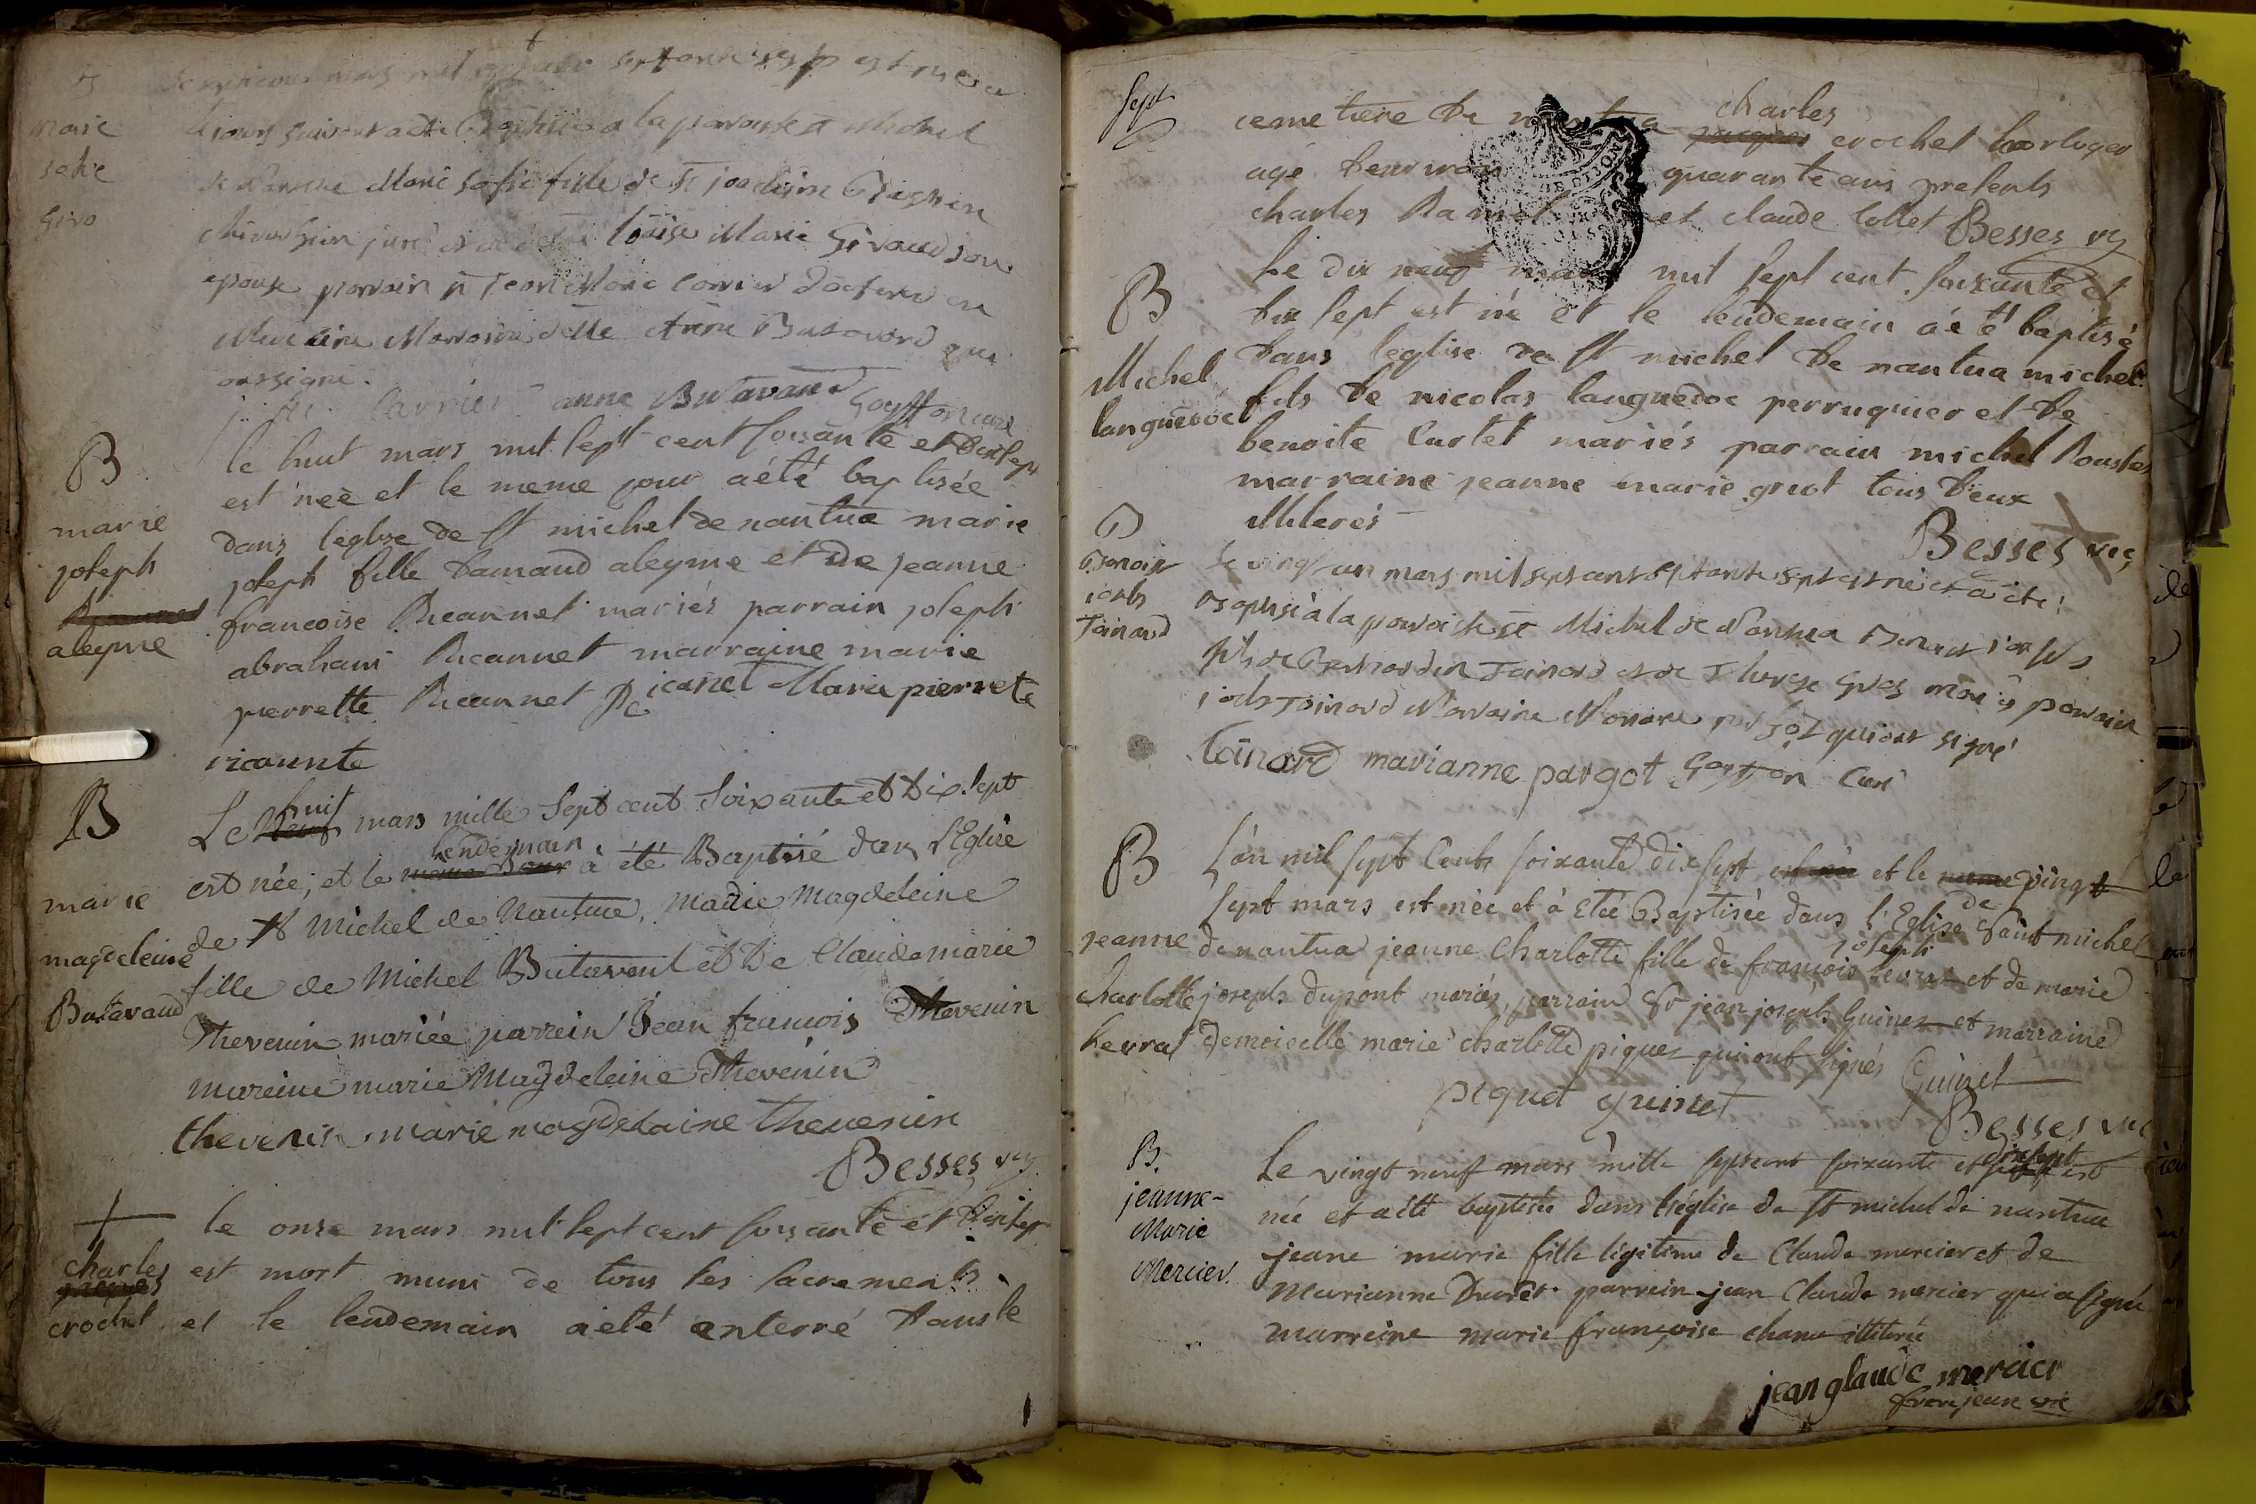 marie
sofie
Giro
mars mil sept
a la paroisse
Marie sofie fille de joachim
chirurgien juré et de loüise Marie Giraud son
epouse parrain Jean Marie Carrier docteur en
Marraine delle Anne Butavand qui
ont signé.
Carrier anne Butavand Goyffon curé
B
marie
joseph
aleyme
le huit mars mil sept cent soixante et dix sept
est neé et le meme jour a été baptisée
dans l'eglise de st michel de nantua marie
joseph fille damand aleyme et de jeanne
francoise Ricannet mariés parrain joseph
abraham Ricannet marraine marie
pierrette Ricannet Ricanet Marie pierrete
ricannte
B
marie
magdeleine
Butavaud
Le huit mars mille Sept cent Soixante et dix sept
est née, et le lendemain à été Baptisé dans l'Eglise
de st Michel de Nantua, Marie Magdeleine
fille de Michel Butavent et de Claude marie
Thevenin mariée parrein Jean francois Thevenin
mareine marie Magdeleine Thevenin
thevenin marie magdelaine thevenin
Besses vic
charles
crochet
le onse mars mil sept cent soisante et dix sept
est mort muni de tous les sacrements
et le lendemain a été enterré dans le
Sept
cemetiere de nantua charles crochet horloger
agé denviron quarante ans presents
charles Ramel et claude Collet Besses vic
B
Michel
languedoc
Le dix neuf mars mil sept cent soixante et
dix sept est né et le lendemain a été baptisé
dans l'eglise de st michel de nantua michel
fils de nicolas languedoc perruquier et de
benoite Curtet mariés parrain michel
marraine jeanne marie griot tous deux
illiterés
Besses vic
B
Benoit
joseph
Toinard
Le vingt un mars mil sept cent septante sept est né et a été
baptisé à la paroisse st Michel de Nantua Benoit joseph
fils de Bernardin Toinard et de Therese Gros mariés parrain
joseph Toinard Marraine Marianne pargot qui ont signé
toinard marianne pargot Goyffon Curé
B
jeanne
Charlotte
herral
L'an mil sept Cents soixante dix sept et le vingt
sept mars est née et à etée Baptisée dans l'Eglise de Saint michel
de nantua jeanne Charlotte fille de françois joseph et de marie
joseph dupont mariés, parrain Sr jean joseph Guinet et marraine
demoiselle marie charlotte piquet qui ont signés Guinet
piquet guinet
Besses vic
B.
jeanne
Marie
Mercier.
Le vingt neuf mars mille sept cent soixante et dix sept est
née et a été baptisée dans l'église de st michel de nantua
jeane marie fille légitime de Claude mercier et de
Marianne Duret. parrein jean Claude mercier qui a signé
marreine marie françoise chanu illiterée
jean glaude mercier
franjean vic